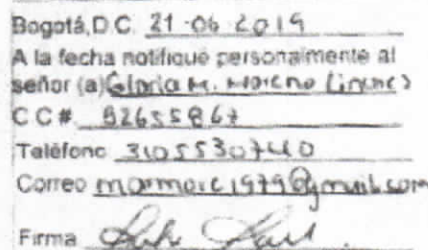 Bogotá, D.C. 21-06-2019
A la fecha notifiqué personalmente al
señor (a) Gloria M. Moreno
C C #. 52655867
Teléfono 3105530740
Correo
Firma